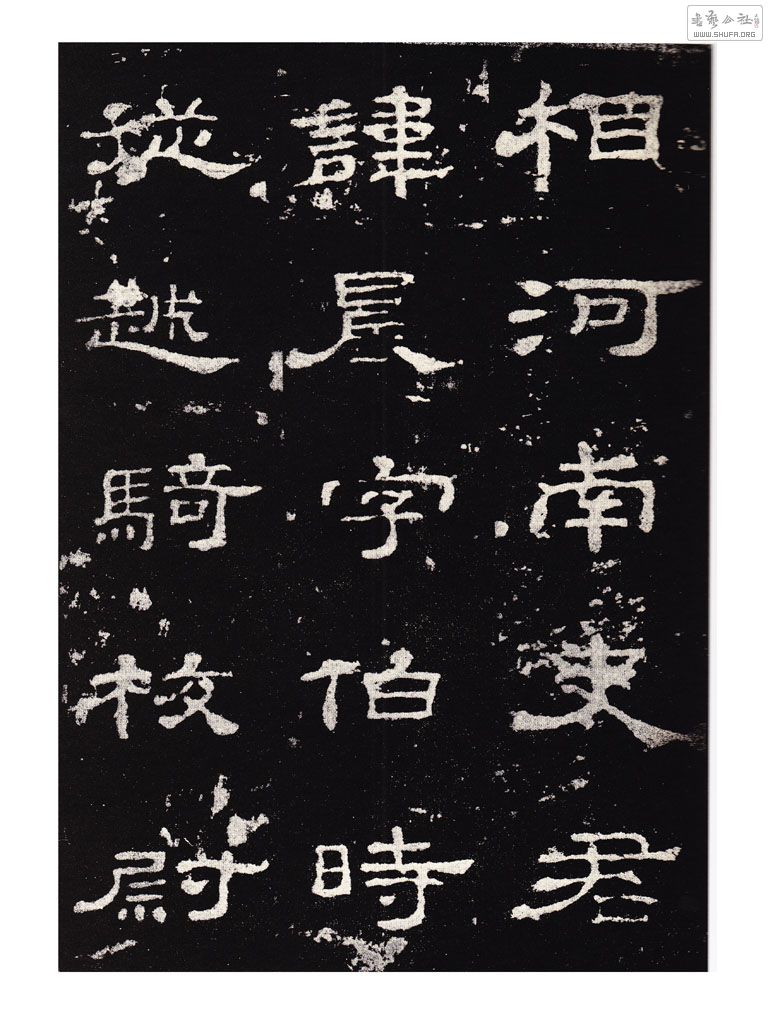 相河南史君
諱晨字伯時
從越騎校尉
书艺公社
WWW.SHUFA.ORG